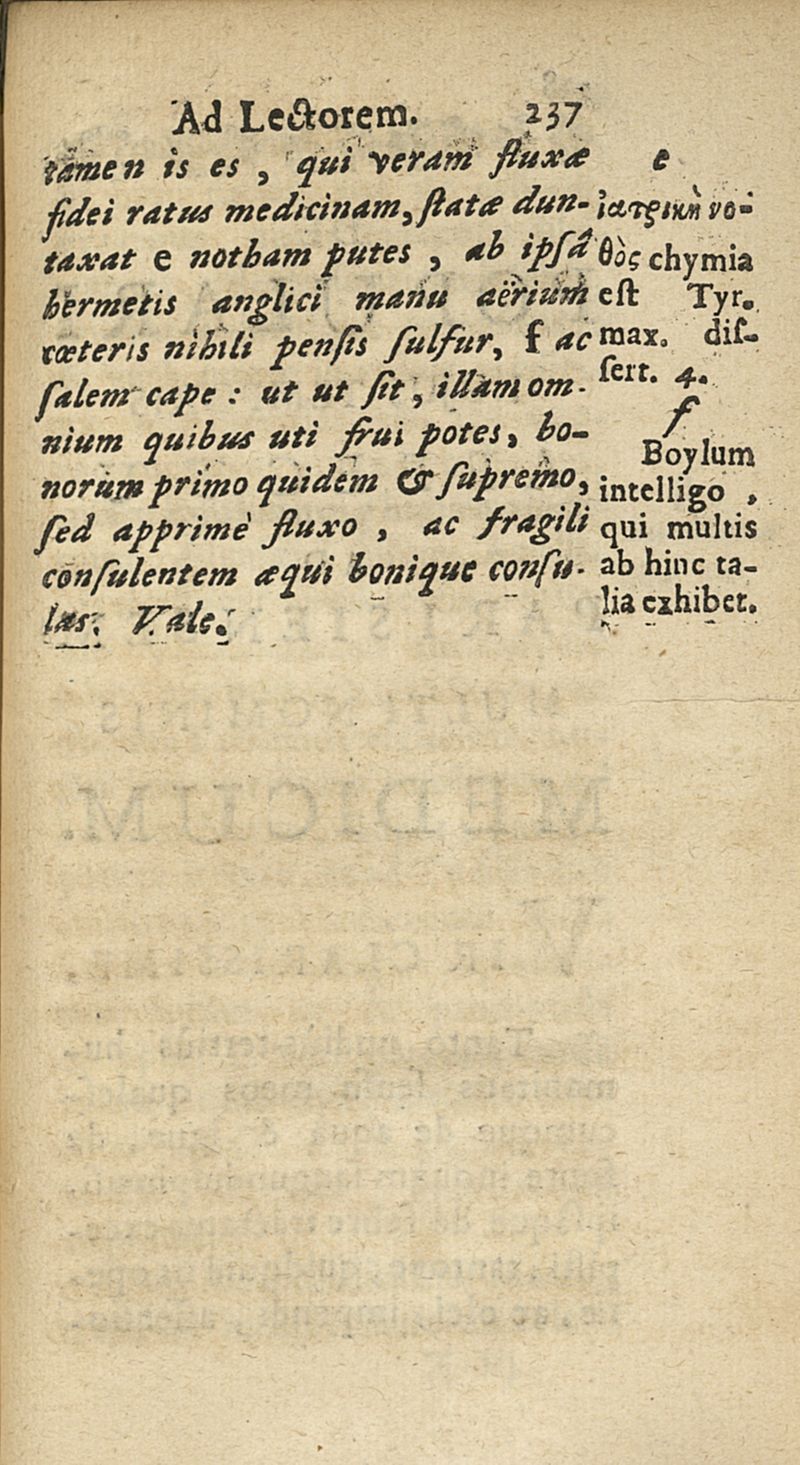 Ad Lectorem. 237
tamen is es, qui veram fluxæ
fidei ratus medicinam, ſtatæ dun-
taxat e notham putes, ab ipſâ
hermetis anglici manu aërium
cœteris nihili penſis ſulfur, f ac
ſalem cape: ut ut ſit, illam om-
nium quibus uti frui potes, bo-
norum primo quidem & ſupremo,
ſed apprimè fluxo, ac fragili
conſulentem æqui bonique conſu-
las. Vale.
e
ἰατρικὴ νο-
θὸς chymia
eſt Tyr.
max. diſ-
ſert. 4.
f
Boylum
intelligo,
qui multis
ab hinc ta-
lia exhibet.